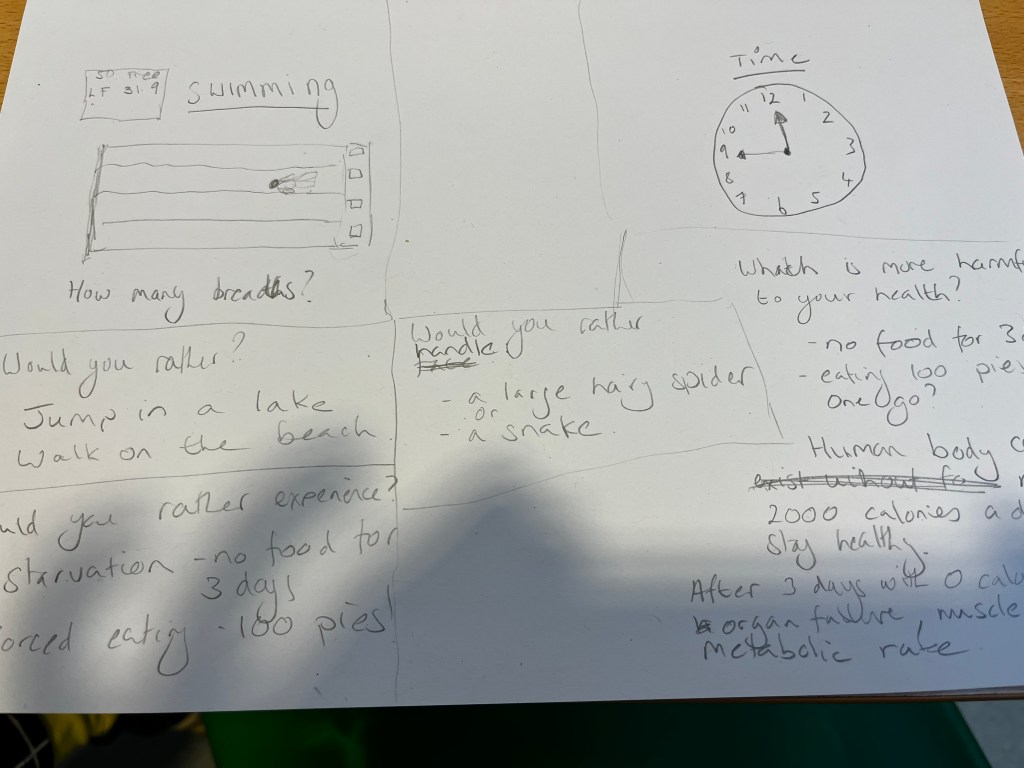 LF 31 9
swimming
How many breadths?
Would you rather?
Jump in a lake
Walk on the beach
uld you rather experience?
starvation - no food for
3 days
orced eating - 100 pies!
Would you rather
handle
- a large hairy spider
or
- a snake
Time
12
1
2
3
4
5
6
7
8
9
10
11
Which is more harmf
to your health?
- no food for 3
- eating 100 pies
one go?
Human body c
exist without fo
2000 calories a d
stay healthy.
After 3 days with 0 calo
organ failure, muscle
metabolic rate